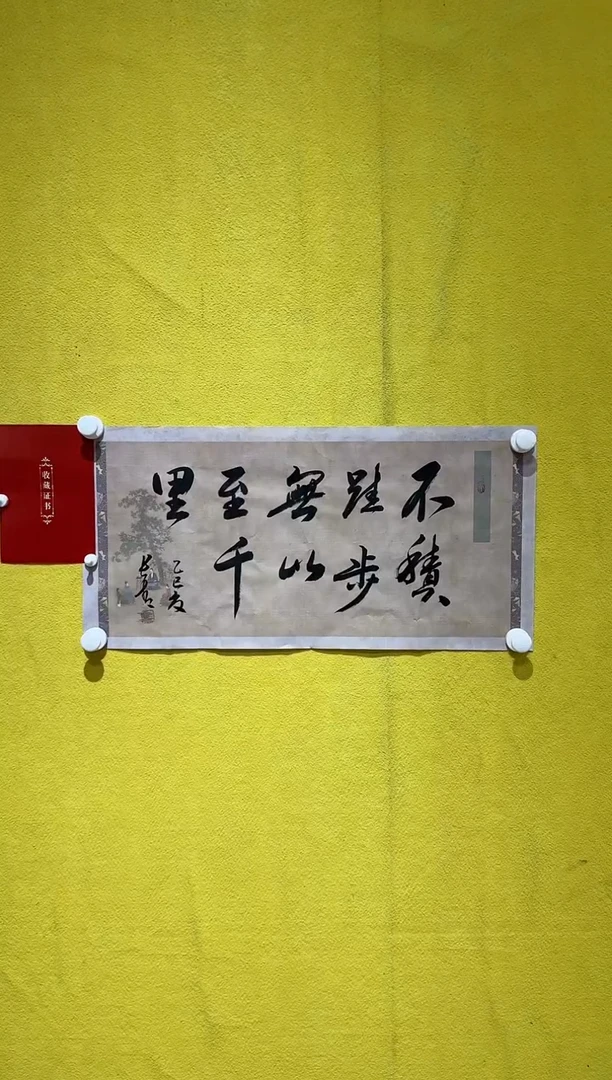 不積
跬步
無以
至千
里
乙巳夏
收藏证书